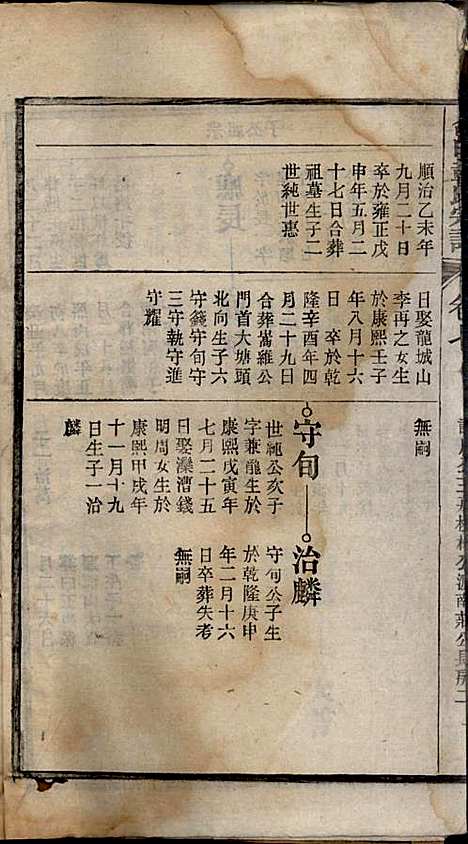 順治乙未年
九月二十日
卒於雍正戊
申年五月二
十七日合葬
祖墓生子二
世純世惠
日娶龍城山
李再之女生
於康熙壬子
年八月十六
日　卒於乾
隆辛酉年四
月二十九日
合葬嵩維公
門首大塘頭
北向生子六
守籛守旬守
三守執守進
守耀
無嗣
守旬
世純公次子
字兼龍生於
康熙戊寅年
七月二十五
日娶灤漕錢
明周女生於
康熙甲戌年
十一月十九
日生子一治
麟
治麟
守旬公子生
於乾隆庚申
年二月十六
日卒葬失考
無嗣